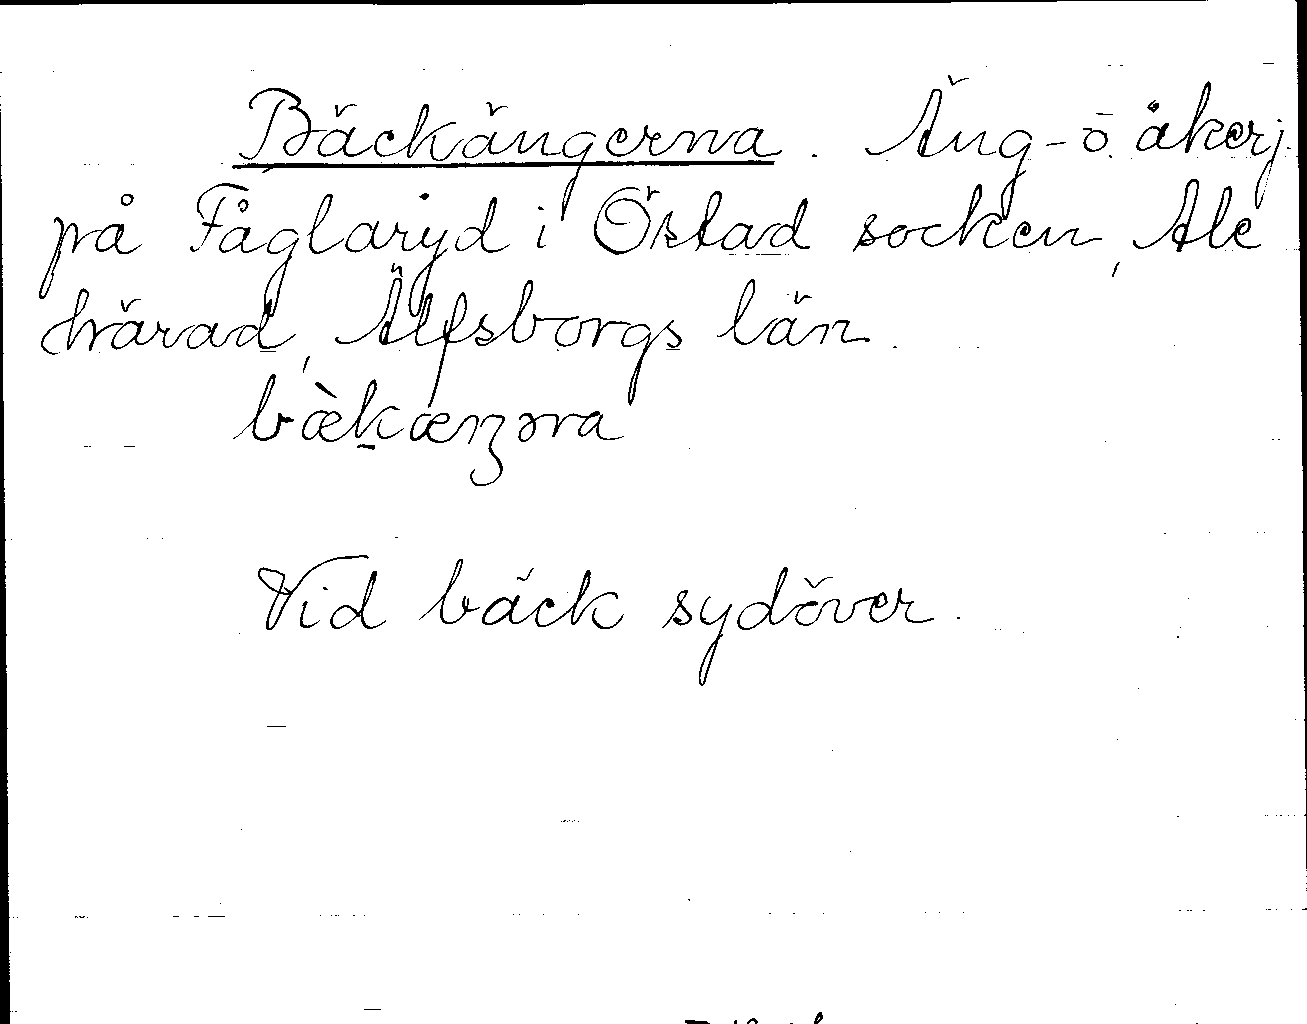 Bäckängerna. Äng- o. åkerj.
på Fåglaryd i Östad socken, Ale
härad, Älfsborgs län.
bæ̀kæŋəra
Vid bäck sydöver.